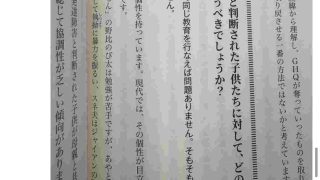 線から理解し、GHQが奪っていったものを取り
り戻させる一番の方法ではないかと考えています
と判断された子供たちに対して、どの
うべきでしょうか？
同じ教育を行なえば問題ありません。そもそも
個性を持っています。現代では、その個性が目立
ん」の野比のび太は勉強が苦手ですが、あやと
して執拗に暴力を振るい、スネ夫はジャイアンの
発達障害と判断された子供が診親して
総じて協調性が乏しい傾向がありま